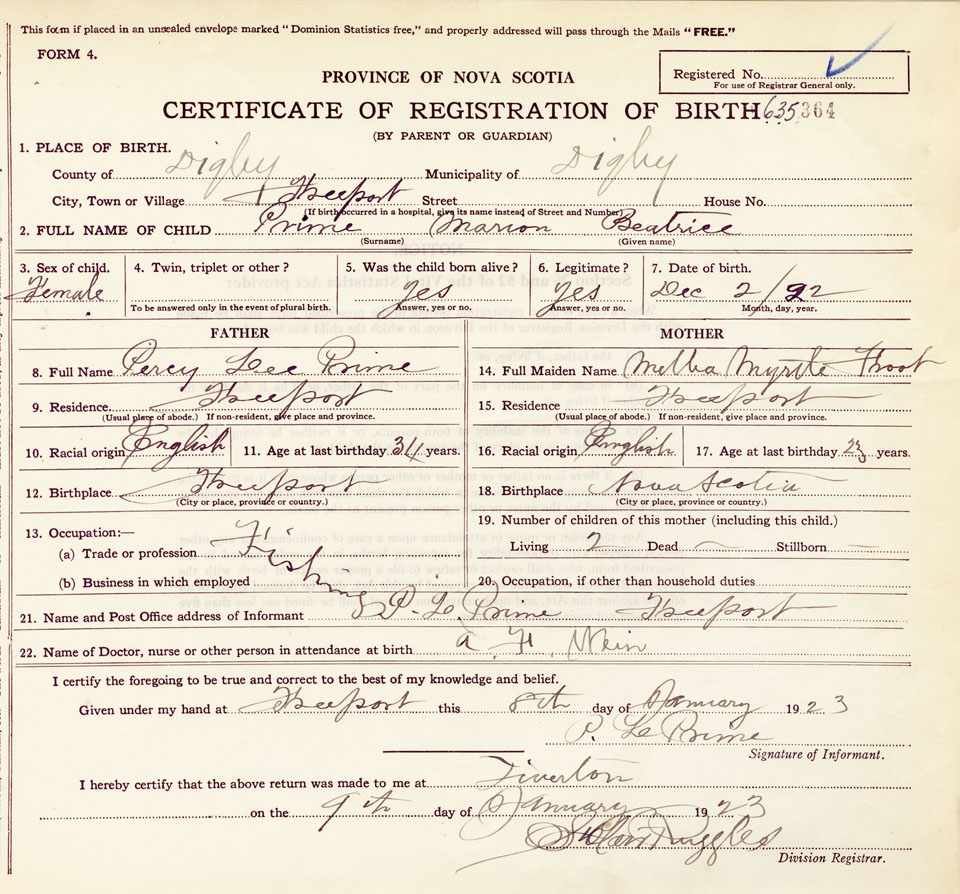 This form if placed in an unsealed envelope marked "Dominion Statistics free," and properly addressed will pass through the Mails "FREE."
FORM 4.
PROVINCE OF NOVA SCOTIA
Registered No.
For use of Registrar General only.
CERTIFICATE OF REGISTRATION OF BIRTH 635 364
(BY PARENT OR GUARDIAN)
1. PLACE OF BIRTH.
County of Digby Municipality of Digby
City, Town or Village Freeport Street House No.
(If birth occurred in a hospital, give its name instead of Street and Number)
2. FULL NAME OF CHILD Prime Marion Beatrice
(Surname) (Given name)
3. Sex of child. 4. Twin, triplet or other? 5. Was the child born alive? 6. Legitimate? 7. Date of birth.
Female Yes Yes Dec 2/22
To be answered only in the event of plural birth. Answer, yes or no. Answer, yes or no. Month, day, year.
FATHER MOTHER
8. Full Name Percy Lee Prime 14. Full Maiden Name Myrtle
9. Residence Freeport 15. Residence Freeport
(Usual place of abode.) If non-resident, give place and province. (Usual place of abode.) If non-resident, give place and province.
10. Racial origin English 11. Age at last birthday 31 years. 16. Racial origin English 17. Age at last birthday 23 years.
12. Birthplace Freeport 18. Birthplace Nova Scotia
(City or place, province or country.) (City or place, province or country.)
13. Occupation:— 19. Number of children of this mother (including this child.)
(a) Trade or profession Fishing Living 2 Dead — Stillborn —
(b) Business in which employed 20. Occupation, if other than household duties
21. Name and Post Office address of Informant P. L. Prime Freeport
22. Name of Doctor, nurse or other person in attendance at birth A. F. Weir
I certify the foregoing to be true and correct to the best of my knowledge and belief.
Given under my hand at Freeport this 8th day of January 1923
P. L. Prime
Signature of Informant.
I hereby certify that the above return was made to me at Tiverton
on the 9th day of January 1923
Ruggles
Division Registrar.